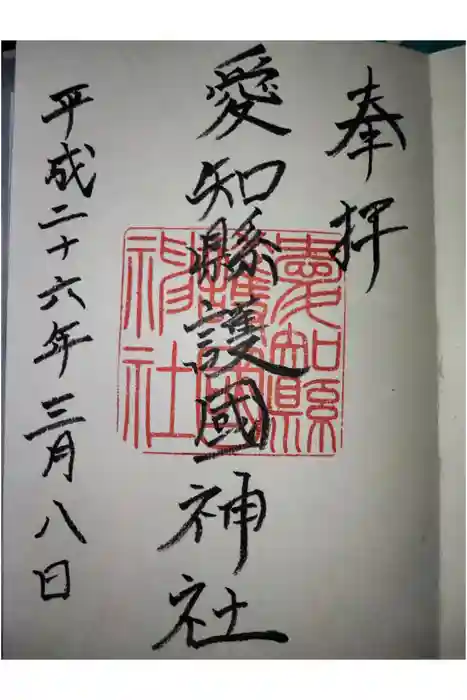 奉拝
愛知縣護國神社
愛知縣
護國
神社
平成二十六年三月八日